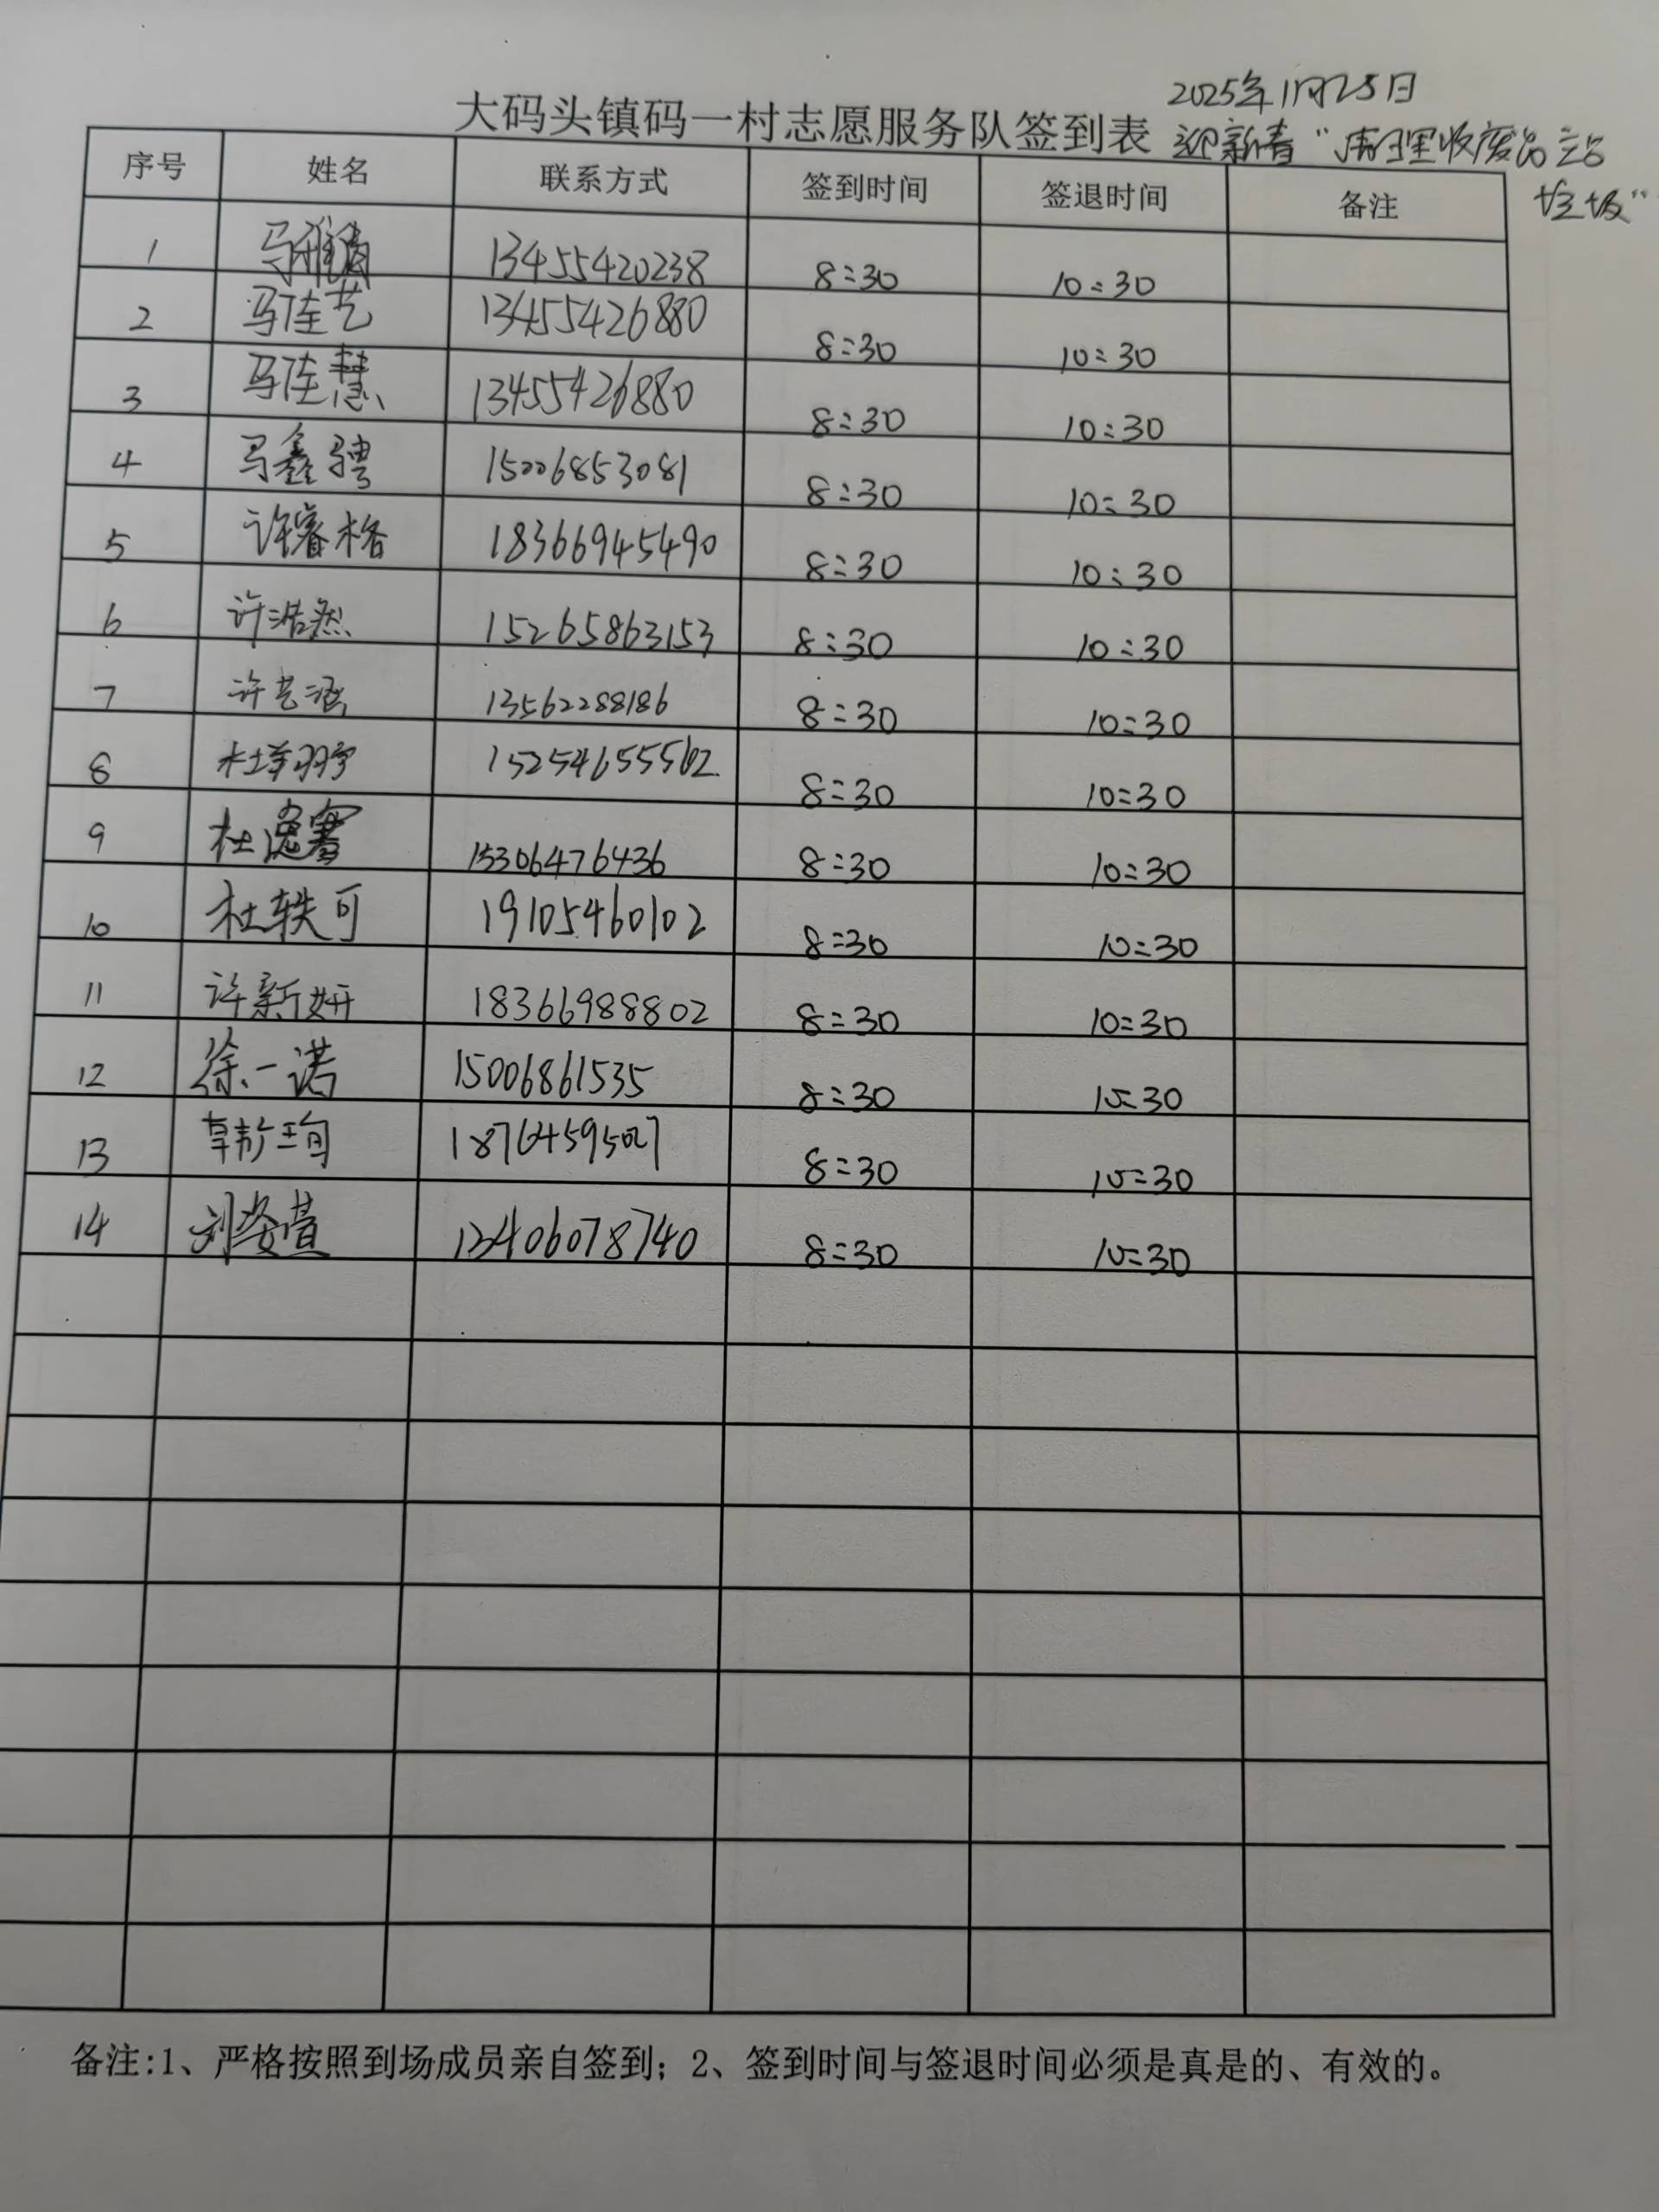 2025年1月25日
大码头镇码一村志愿服务队签到表 迎新春"清理收废品站
垃圾"
序号 姓名 联系方式 签到时间 签退时间 备注
1 马雅 13455420238 8:30 10:30
2 马佳艺 13455426880 8:30 10:30
3 马佳慧 13455426880 8:30 10:30
4 马鑫骋 15006853081 8:30 10:30
5 许睿格 18366945490 8:30 10:30
6 许浩然 15265863153 8:30 10:30
7 许艺涵 13562288186 8:30 10:30
8 杜 羽宁 8:30 10:30
9 杜 15306476436 8:30 10:30
10 杜轶可 19105460102 8:30 10:30
11 许新妍 18366988802 8:30 10:30
12 徐一诺 15006861535 8:30 10:30
13 韩玉珣 18764595027 8:30 10:30
14 刘姿萱 13406078740 8:30 10:30
备注:1、严格按照到场成员亲自签到；2、签到时间与签退时间必须是真是的、有效的。